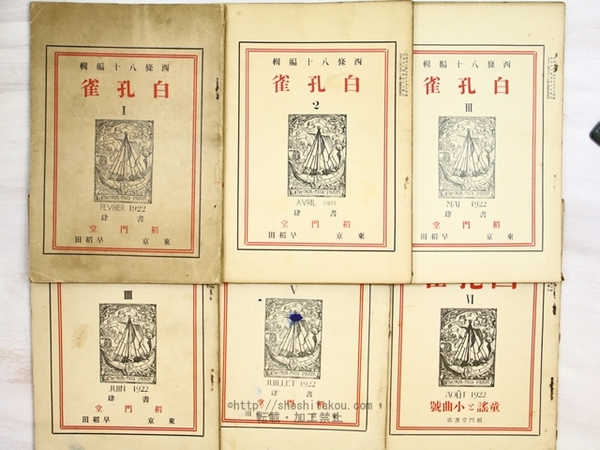 輯編十八條西
雀孔白
I
FEVRIER 1922
肆書
堂門稻
田稻早 京東
輯編十八條西
雀孔白
2
AVRIL 1922
肆書
堂門稻
田稻早 京東
輯編十八條西
雀孔白
III
MAI 1922
肆書
堂門稻
田稻早 京東
IIII
JUIN 1922
肆書
堂門稻
田稻早 京東
V
JUILLET 1922
肆書
堂門稻
雀孔白
VI
AOÛT 1922
號曲小と謠童
稻門堂書店
©http://shoshitakou.com/
転載・加工禁止